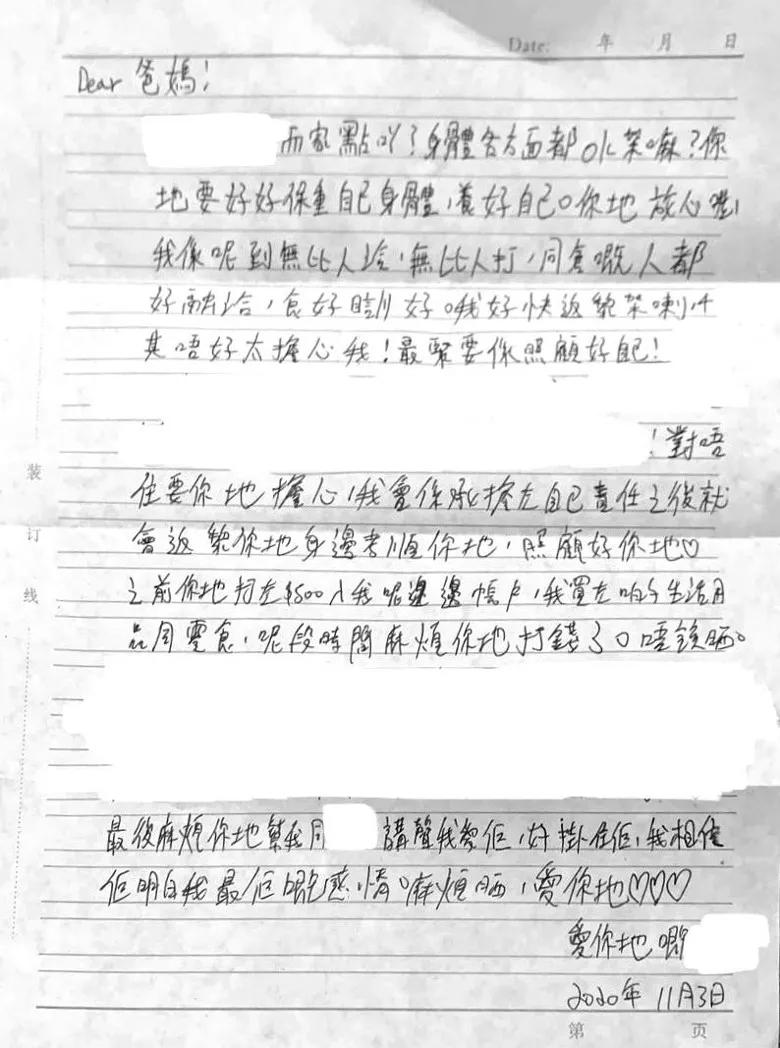 Date: 年 月 日
Dear 爸媽！
而家點吖？身體各方面都ok架嘛？你
地要好好保重自己身體，養好自己。你地放心啦，
我係呢到無比人，無比人打，同倉嘅人都
好，食好瞓好。我好快返黎架喇！
其唔好太擔心我！最緊要你照顧好自己！
！對唔
住要你地擔心，我會係承擔左自己責任之後就
會返黎你地身邊孝順你地，照顧好你地♡
之前你地打左$500入我呢邊邊帳戶，我買左啲生活用
品同零食，呢段時間麻煩你地打錢了。唔該晒。
最後麻煩你地幫我同 講聲我愛佢，好掛住佢，我相信
佢明白我最佢嘅感情。麻煩晒，愛你地♡♡♡
愛你地嘅
2020年 11月3日
第 頁
装
订
线